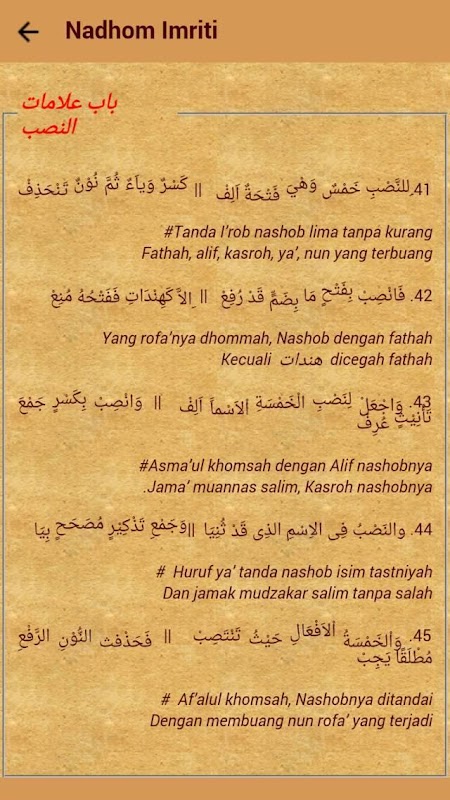 Nadhom Imriti
باب علامات
النصب
41. لِلنَّصْبِ خَمْسٌ وَهْيَ فَتْحَةٌ اَلِفْ || كَسْرٌ وَيَاءٌ ثُمَّ نُوْنٌ تَنْحَذِفْ
#Tanda I'rob nashob lima tanpa kurang
Fathah, alif, kasroh, ya', nun yang terbuang
42. فَانْصِبْ بِفَتْحٍ مَا بِضَمٍّ قَدْ رُفِعْ || اِلاَّ كَهِنْدَاتٍ فَفَتْحُهُ مُنِعْ
Yang rofa'nya dhommah, Nashob dengan fathah
Kecuali هندات dicegah fathah
43. وَاجْعَلْ لِنَصْبِ الْخَمْسَةِ اْلاَسْمآَ اَلِفْ || وَانْصِبْ بِكَسْرٍ جَمْعَ
تَأْنِيْثٍ عُرِفْ
#Asma'ul khomsah dengan Alif nashobnya
Jama' muannas salim, Kasroh nashobnya.
44. والنَصْبُ فِى الاِسْمِ الذِى قَدْ ثُنِيَا ||وَجَمْعِ تَذْكِيْرٍ مُصَحَحٍ بِيَا
# Huruf ya' tanda nashob isim tastniyah
Dan jamak mudzakar salim tanpa salah
45. وَالْخَمْسَةُ اْلاَفْعَالِ حَيْثُ تَنْتَصِبْ || فَحَذْفُ النُّوْنِ الرَّفْعِ
مُطْلَقًا يَجِبْ
# Af'alul khomsah, Nashobnya ditandai
Dengan membuang nun rofa' yang terjadi